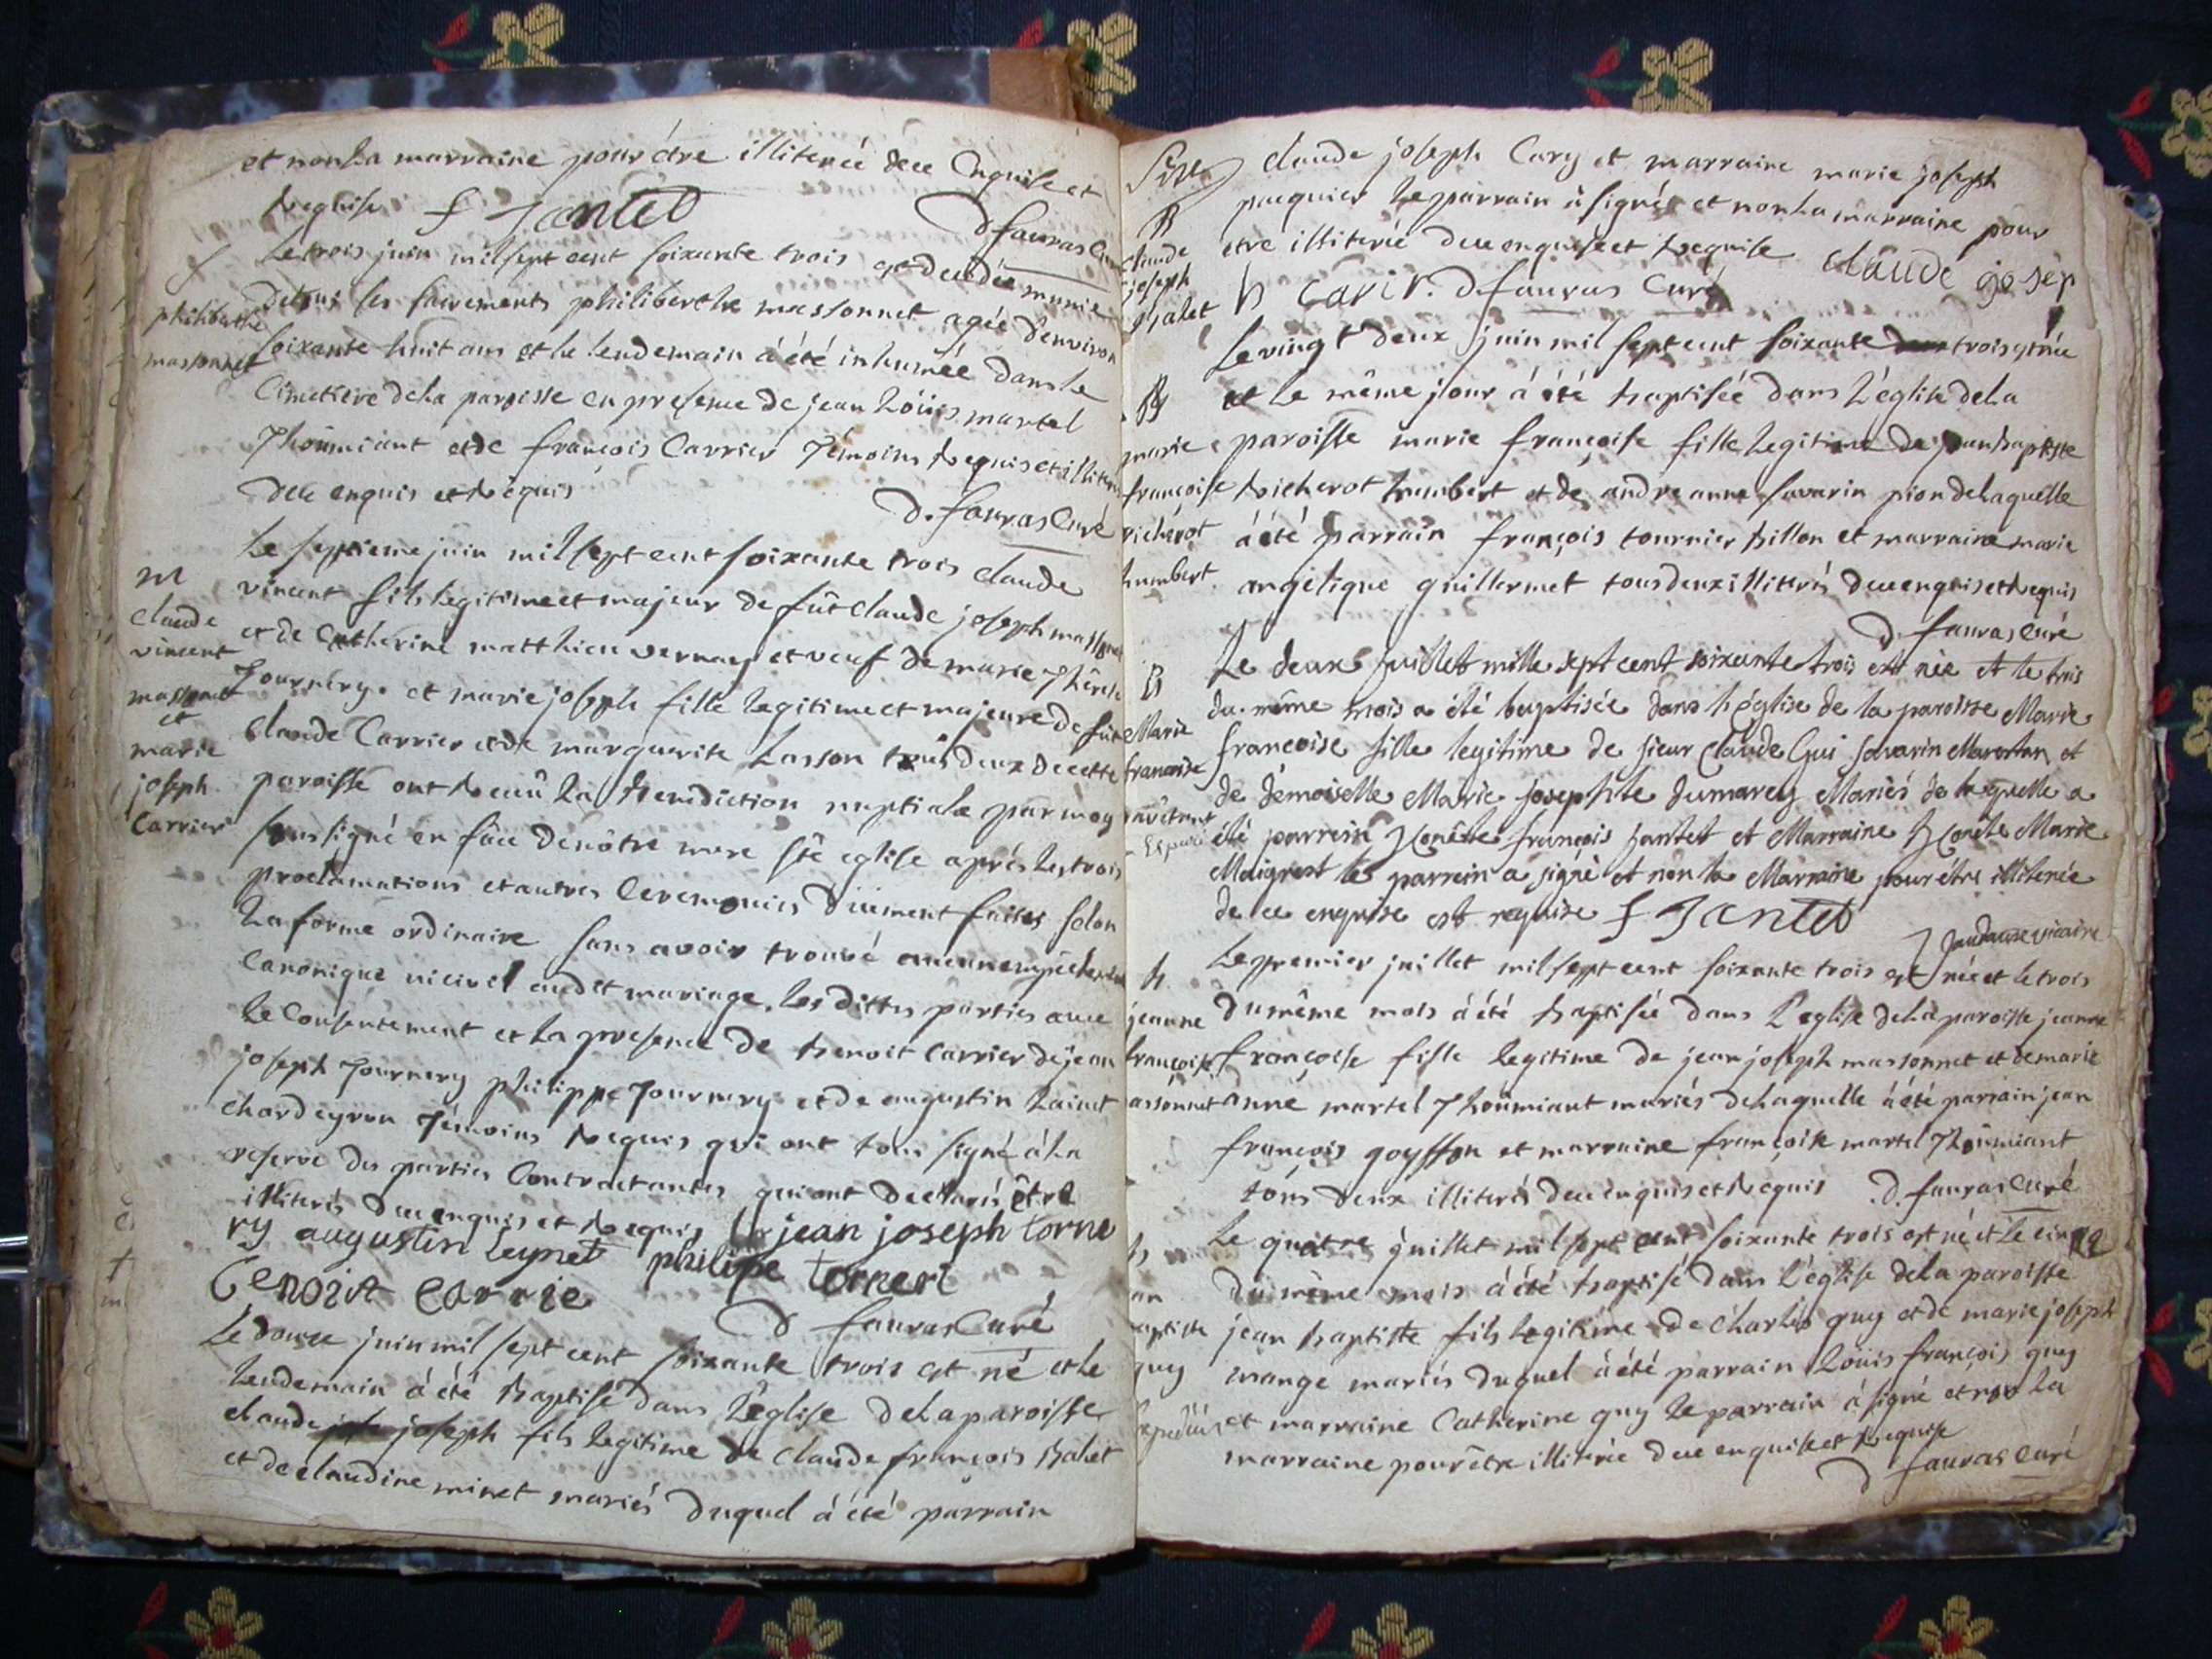 et non la marraine pour être illiterée de ce Enquise et
Requise f Jantet
D fauras Curé
f
philiberthe
massonnet
Le trois juin mil sept cent soixante trois est decedée munie
de tous les sacrements philiberthe massonnet agée d'environ
soixante huit ans et le lendemain à été inhumée dans le
Cimetiere de la paroisse en presence de jean Loüis martel
Thoümiant et de françois Carrier Témoins Requis et illiterés
de ce enquis et Requis
D. fauras Curé
m
claude
vincent
massonnet
et
marie
joseph
Carrier
Le septieme juin mil sept cent soixante trois claude
vincent fils legitime et majeur de fût claude joseph massonnet
et de Catherine matthieu vernay et veuf de marie Thérese
Tournery. et marie joseph fille legitime et majeure de fût
Claude Carrier et de marguerite Lasson tous deux de cette
paroisse ont Recüû La Benediction nuptiale par moy
soussigné en face de nôtre mere ste eglise aprés les trois
proclamations et autres Ceremonies düement faites selon
La forme ordinaire sans avoir trouvé aucun empechement
Canonique ni civil audit mariage. Les dittes parties avec
le Consentement et la presence de Benoit Carrier de jean
joseph Tournery philippe Tournery et de augustin Lainet
chardeyron Témoins Requis qui ont tous signé à la
reserve des parties Contractantes qui ont declarés être
illiterés de ce enquis et Requis jean joseph torne
ry augustin leynet philipe torneri
Benoit carrie
D fauras Curé
Le douze juin mil sept cent soixante trois est né et le
lendemain à été Baptisé dans L'église de la paroisse
claude joseph fils legitime de claude françois Balet
et de claudine minet mariés duquel à été parrain
B
claude
joseph
Balet
claude joseph Cary et marraine marie joseph
pacquier Le parrain à signé et non La marraine pour
etre illiterée de ce enquise et Requise claude gosep
h carir. D fauras Curé
B
marie
françoise
richerot
humbert
Le vingt deux juin mil sept cent soixante trois est née
et Le même jour à été Baptisée dans L'église de La
paroisse marie françoise fille Legitime de jean baptiste
Richerot humbert et de andreanne savarin pion de Laquelle
à été parrain françois tournier billon et marraine marie
angelique guillermet tous deux illiterés de ce enquis et Requis
D. fauras Curé
B
Marie
francoise
Savarin
Marertan
Expedié
Le deux juillet mille sept cent soixante trois est née et le trois
du même mois a été baptisée dans l'église de la paroisse Marie
francoise fille legitime de sieur Claude Gui Savarin Marertan et
de démoiselle Marie Josephte dumarey Mariés de laquelle a
été parrein honête françois Jantet et Marraine honête Marie
Maigrost le parrein a signé et non la Marraine pour être illiterée
de ce enquise est requise f Jantet
vicaire
B.
jeanne
françoise
massonnet
Le premier juillet mil sept cent soixante trois est née et le trois
du même mois à été Baptisée dans L'eglise de La paroisse jeanne
françoise fille legitime de jean joseph massonnet et de marie
anne martel Thoümiant mariés de Laquelle à été parrain jean
françois goyffon et marraine françoise martel Thoümiant
tous deux illiterés de ce enquis et Requis D. fauras Curé
B
jean
baptiste
guy
Expedié
Le quatre juillet mil sept cent soixante trois est né et Le cinq
du même mois à été Baptisé dans L'église de La paroisse
jean Baptiste fils Legitime de charles guy et de marie joseph
mange mariés duquel à été parrain Loüis françois guy
et marraine Catherine guy Le parrain à signé et non La
marraine pour être illiterée de ce enquise et Requise
D fauras curé